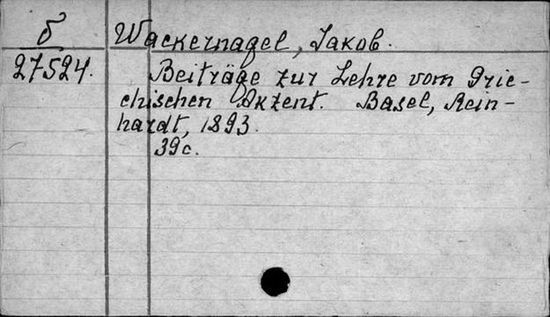 б
27524.
Wackernagel, Jakob.
Beiträge zur Lehre vom Grie-
chischen Akzent. Basel, Rein-
hardt, 1893.
39c.